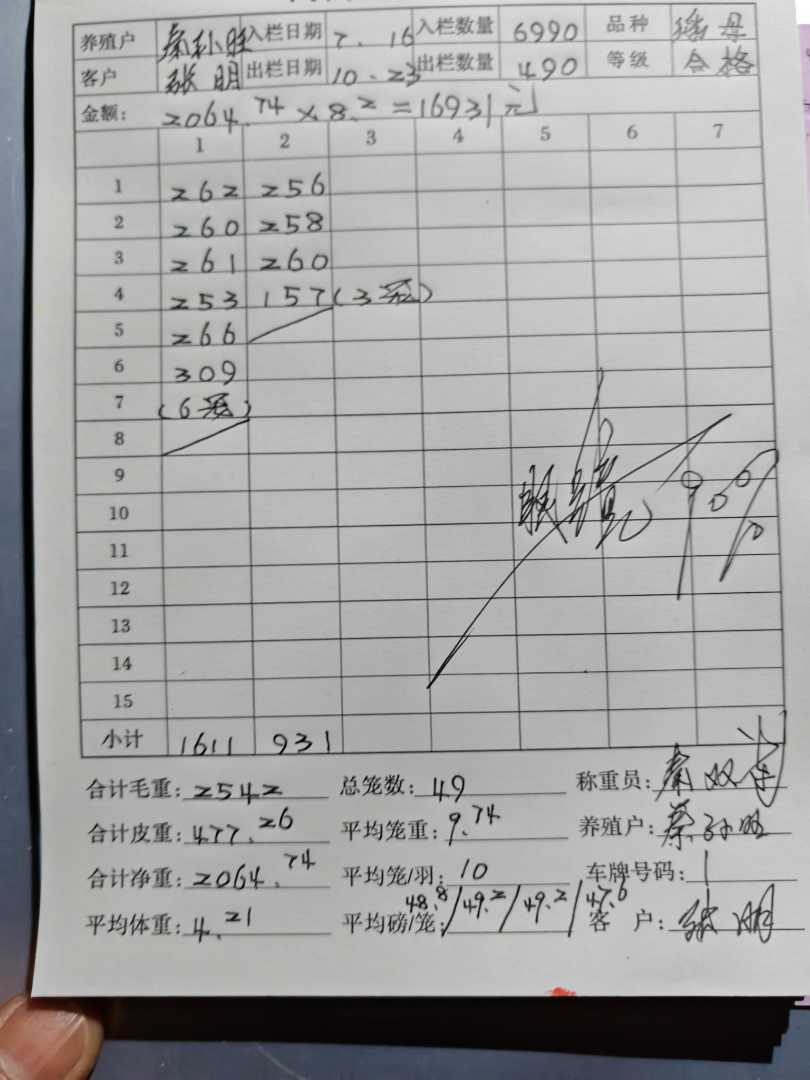 养殖户 秦孙旺 入栏日期 7.16 入栏数量 6990 品种
客户 张明 出栏日期 10.23 出栏数量 490 等级 合格
金额: 2064.74×8.2=16931元
1 2 3 4 5 6 7
1 262 256
2 260 258
3 261 260
4 253 157(3笼)
5 266
6 309
7 (6笼)
8
9
10 90%
11
12
13
14
15
小计 1611 931
合计毛重: 2542 总笼数: 49 称重员: 秦双
合计皮重: 477.26 平均笼重: 9.74 养殖户: 秦孙旺
合计净重: 2064.74 平均笼/羽: 10 车牌号码:
平均体重: 4.21 平均磅/笼: 48.8/49.2/49.2/47.6 客户: 张明